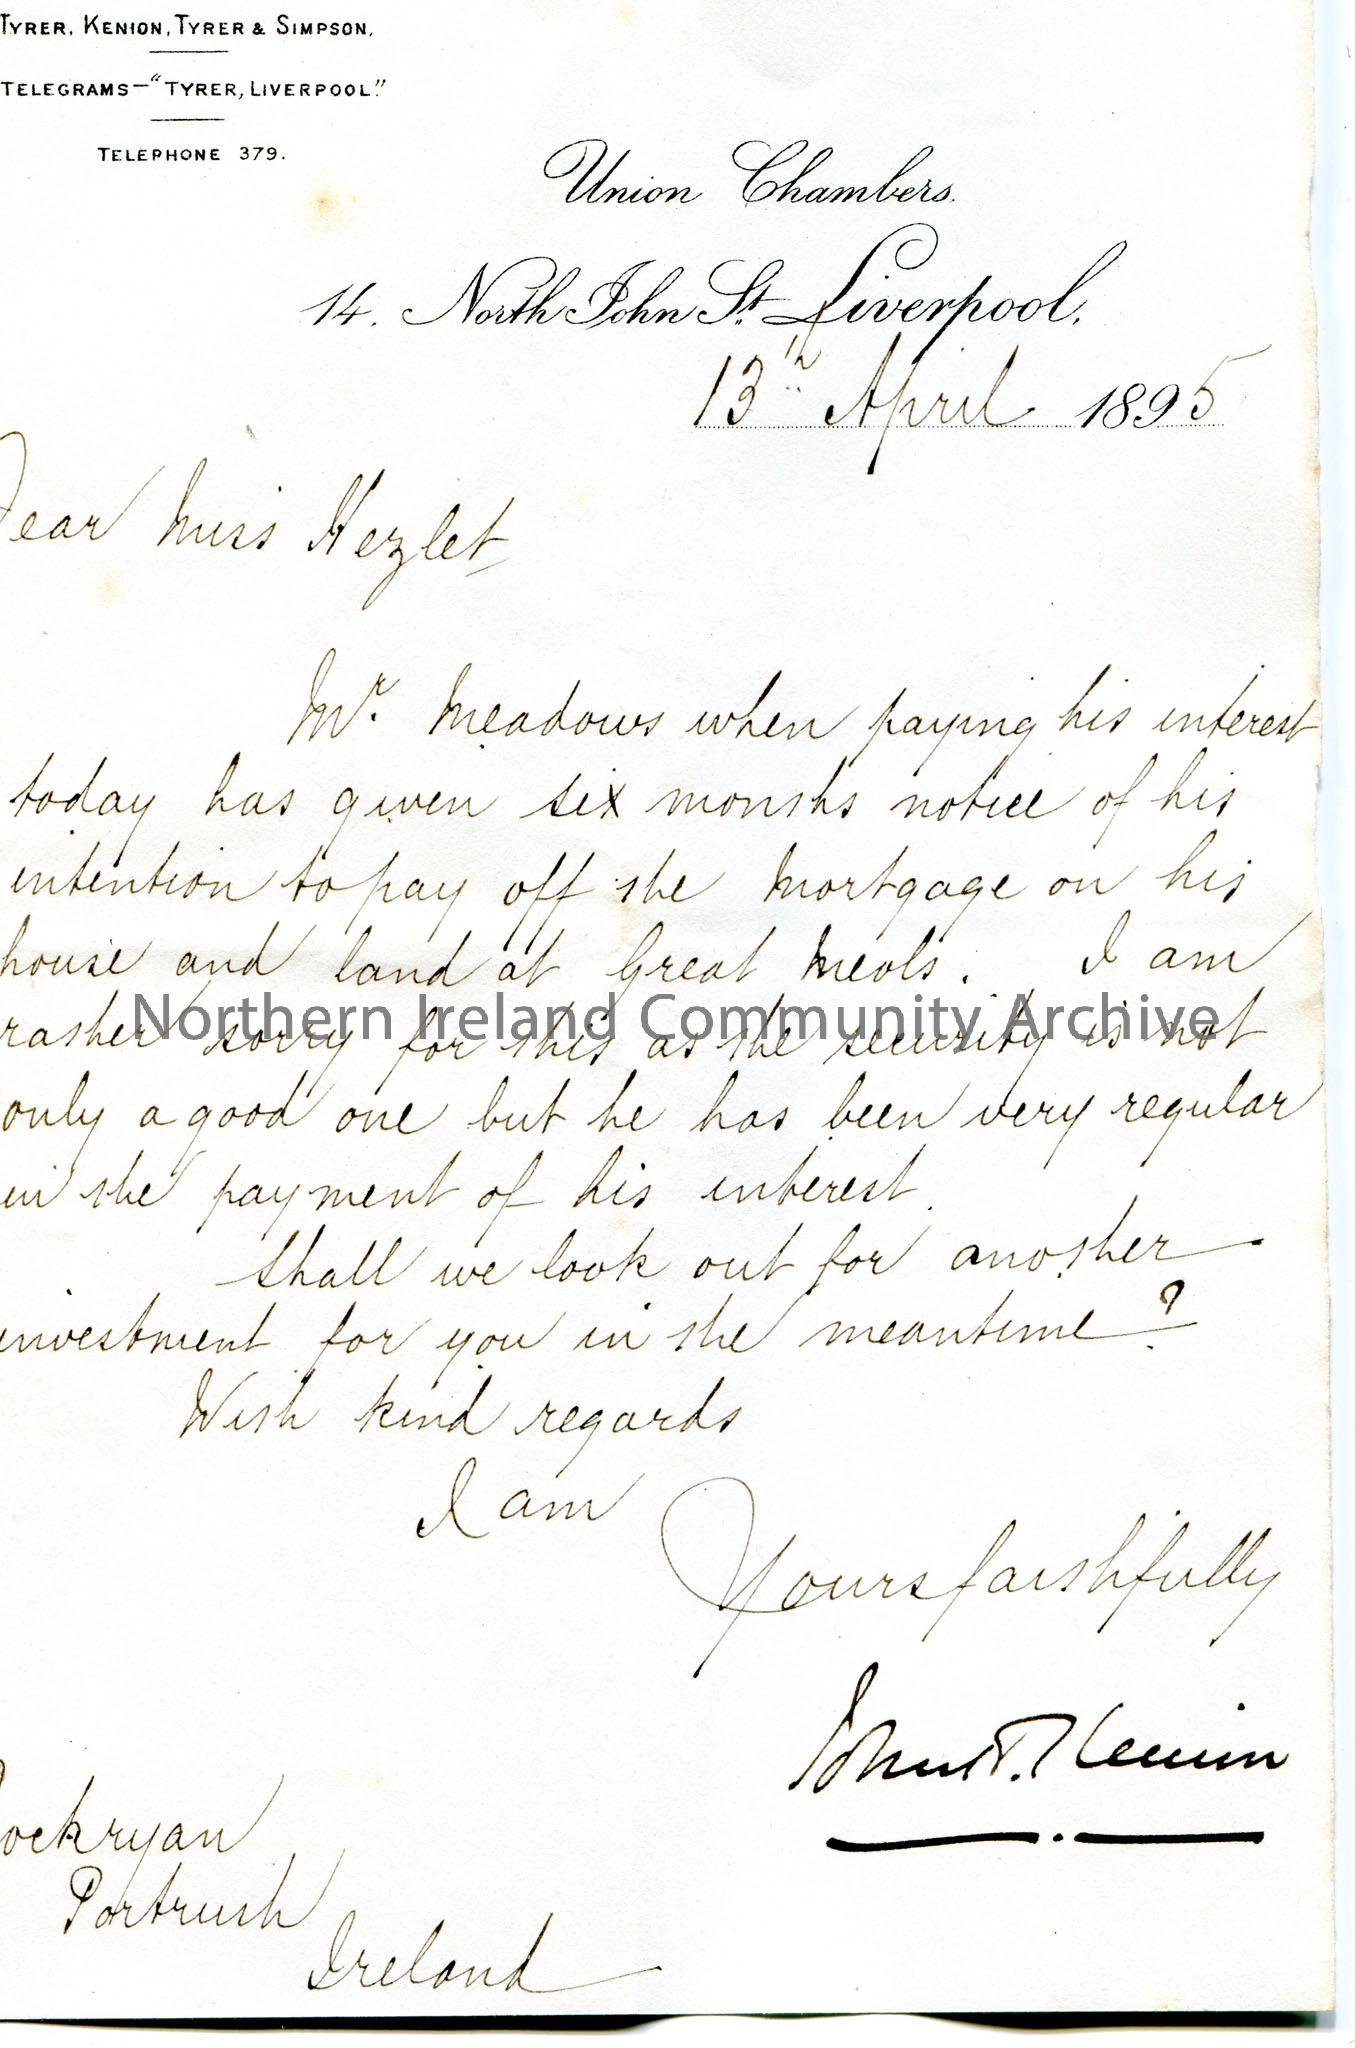 TYRER, KENION, TYRER & SIMPSON,
TELEGRAMS—"TYRER, LIVERPOOL."
TELEPHONE 379.
Union Chambers.
14. North John St. Liverpool,
13th April 1895
Dear Miss Hezlet,
Mr. Meadows when paying his interest
today has given six months notice of his
intention to pay off the mortgage on his
house and land at Great Meols. I am
rather sorry for this as the security is not
Northern Ireland Community Archive
only a good one but he has been very regular
in the payment of his interest.
Shall we look out for another
investment for you in the meantime?
With kind regards
I am
Yours faithfully
John T. Kenion
ockryan
Portrush
Ireland